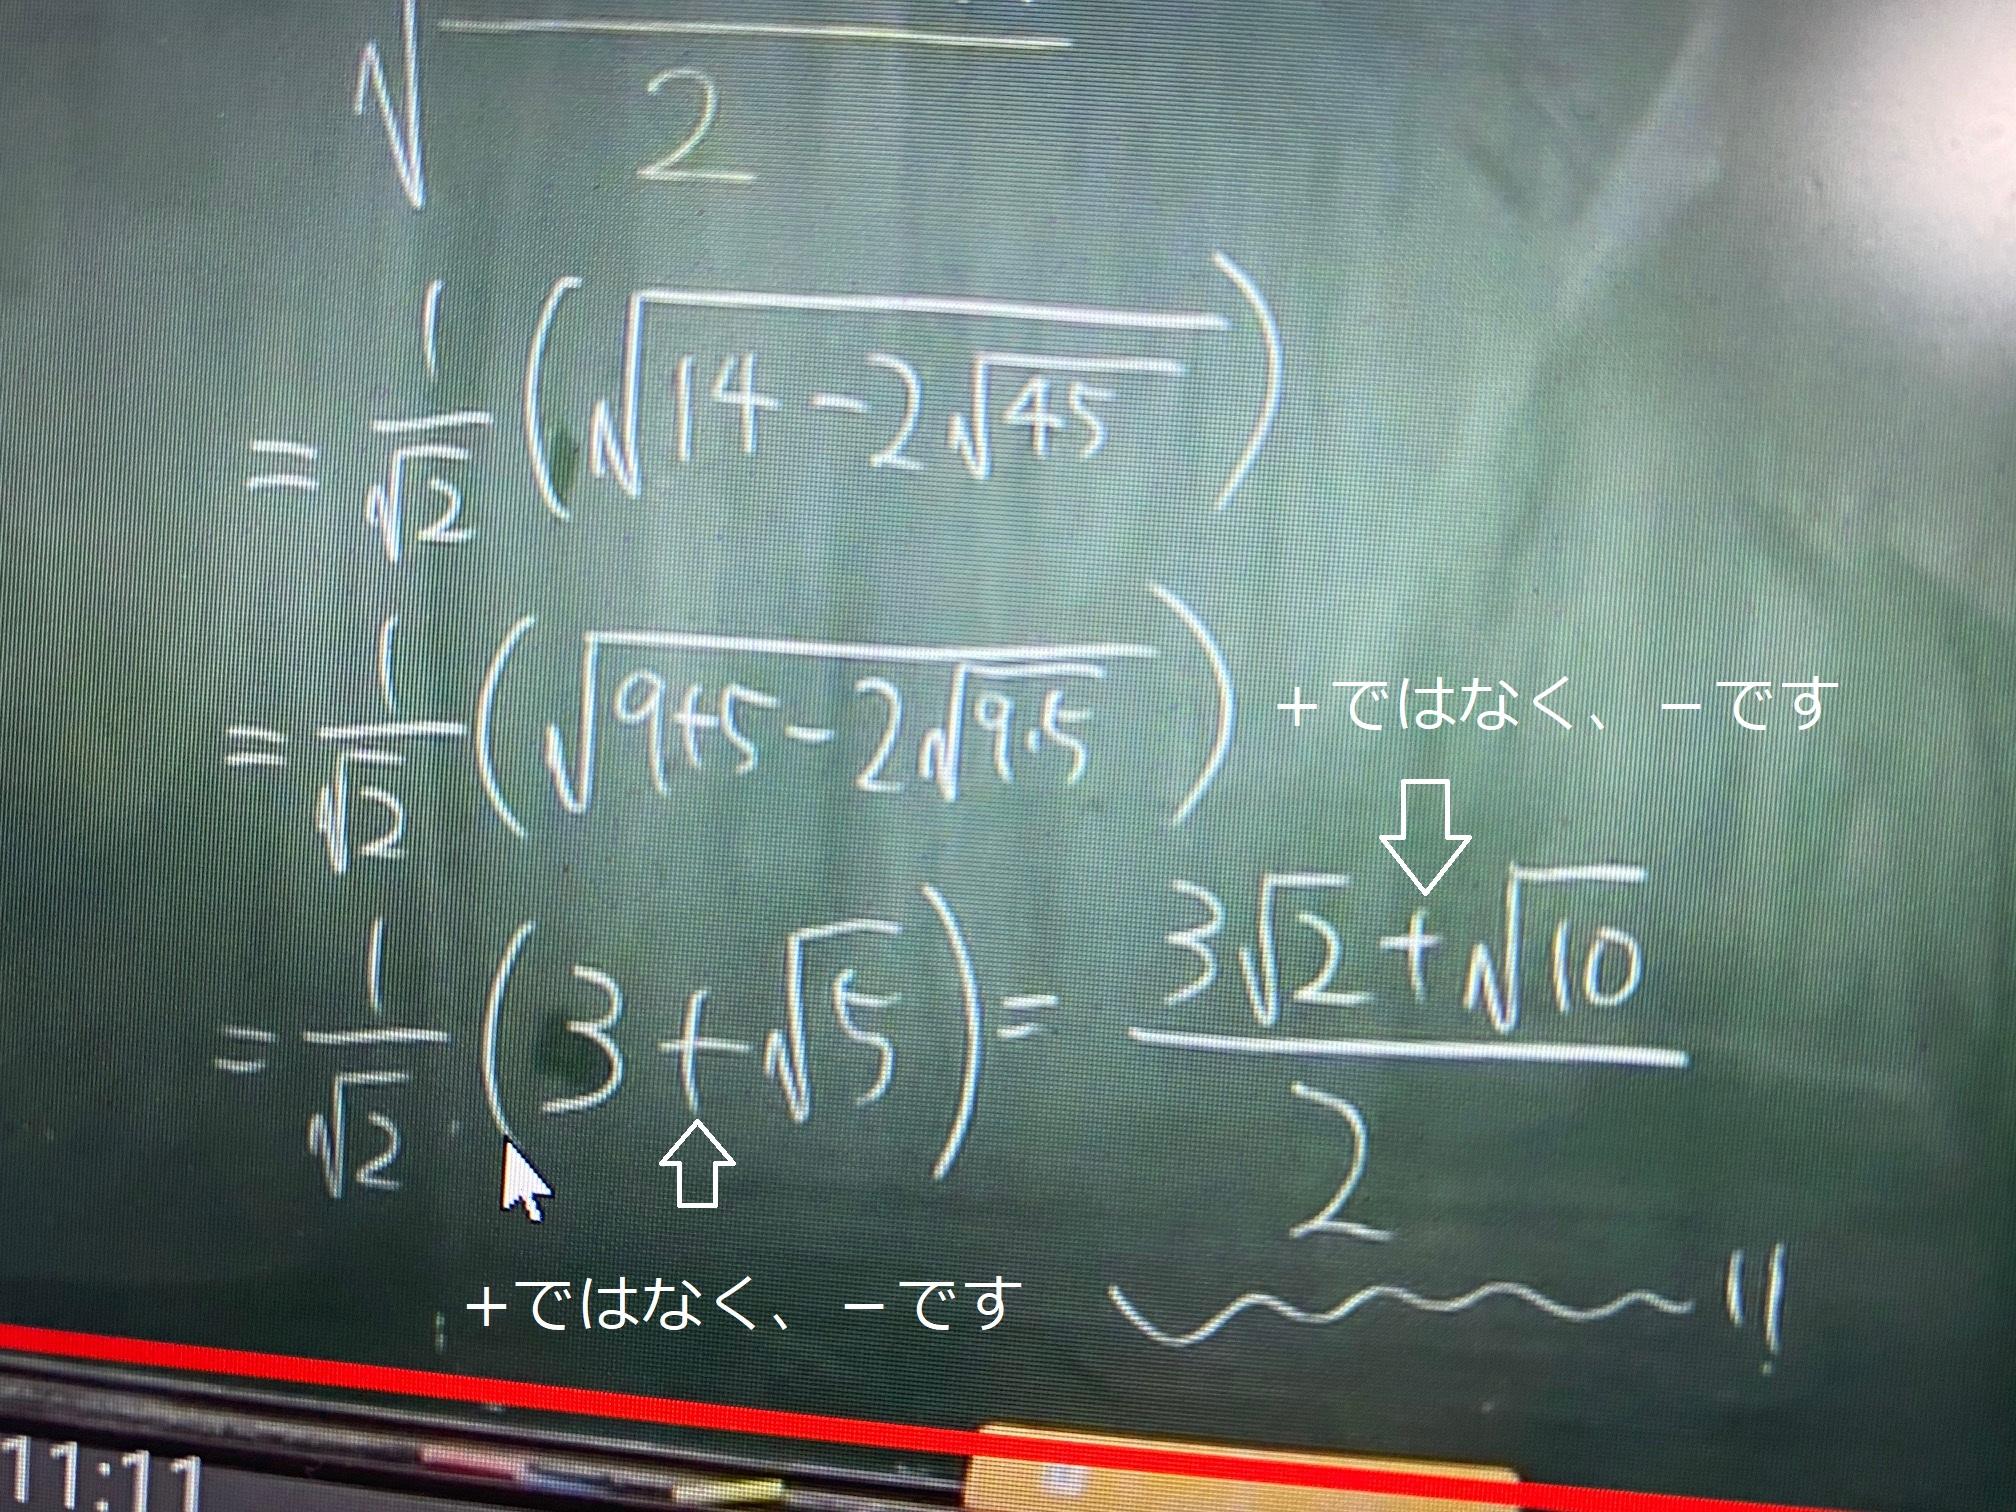 √ 2
= 1/√2 (√(14-2√45))
= 1/√2 (√(9+5-2√(9・5)))
+ではなく、-です
= 1/√2 (3+√5) = (3√2+√10)/2
+ではなく、-です
11:11